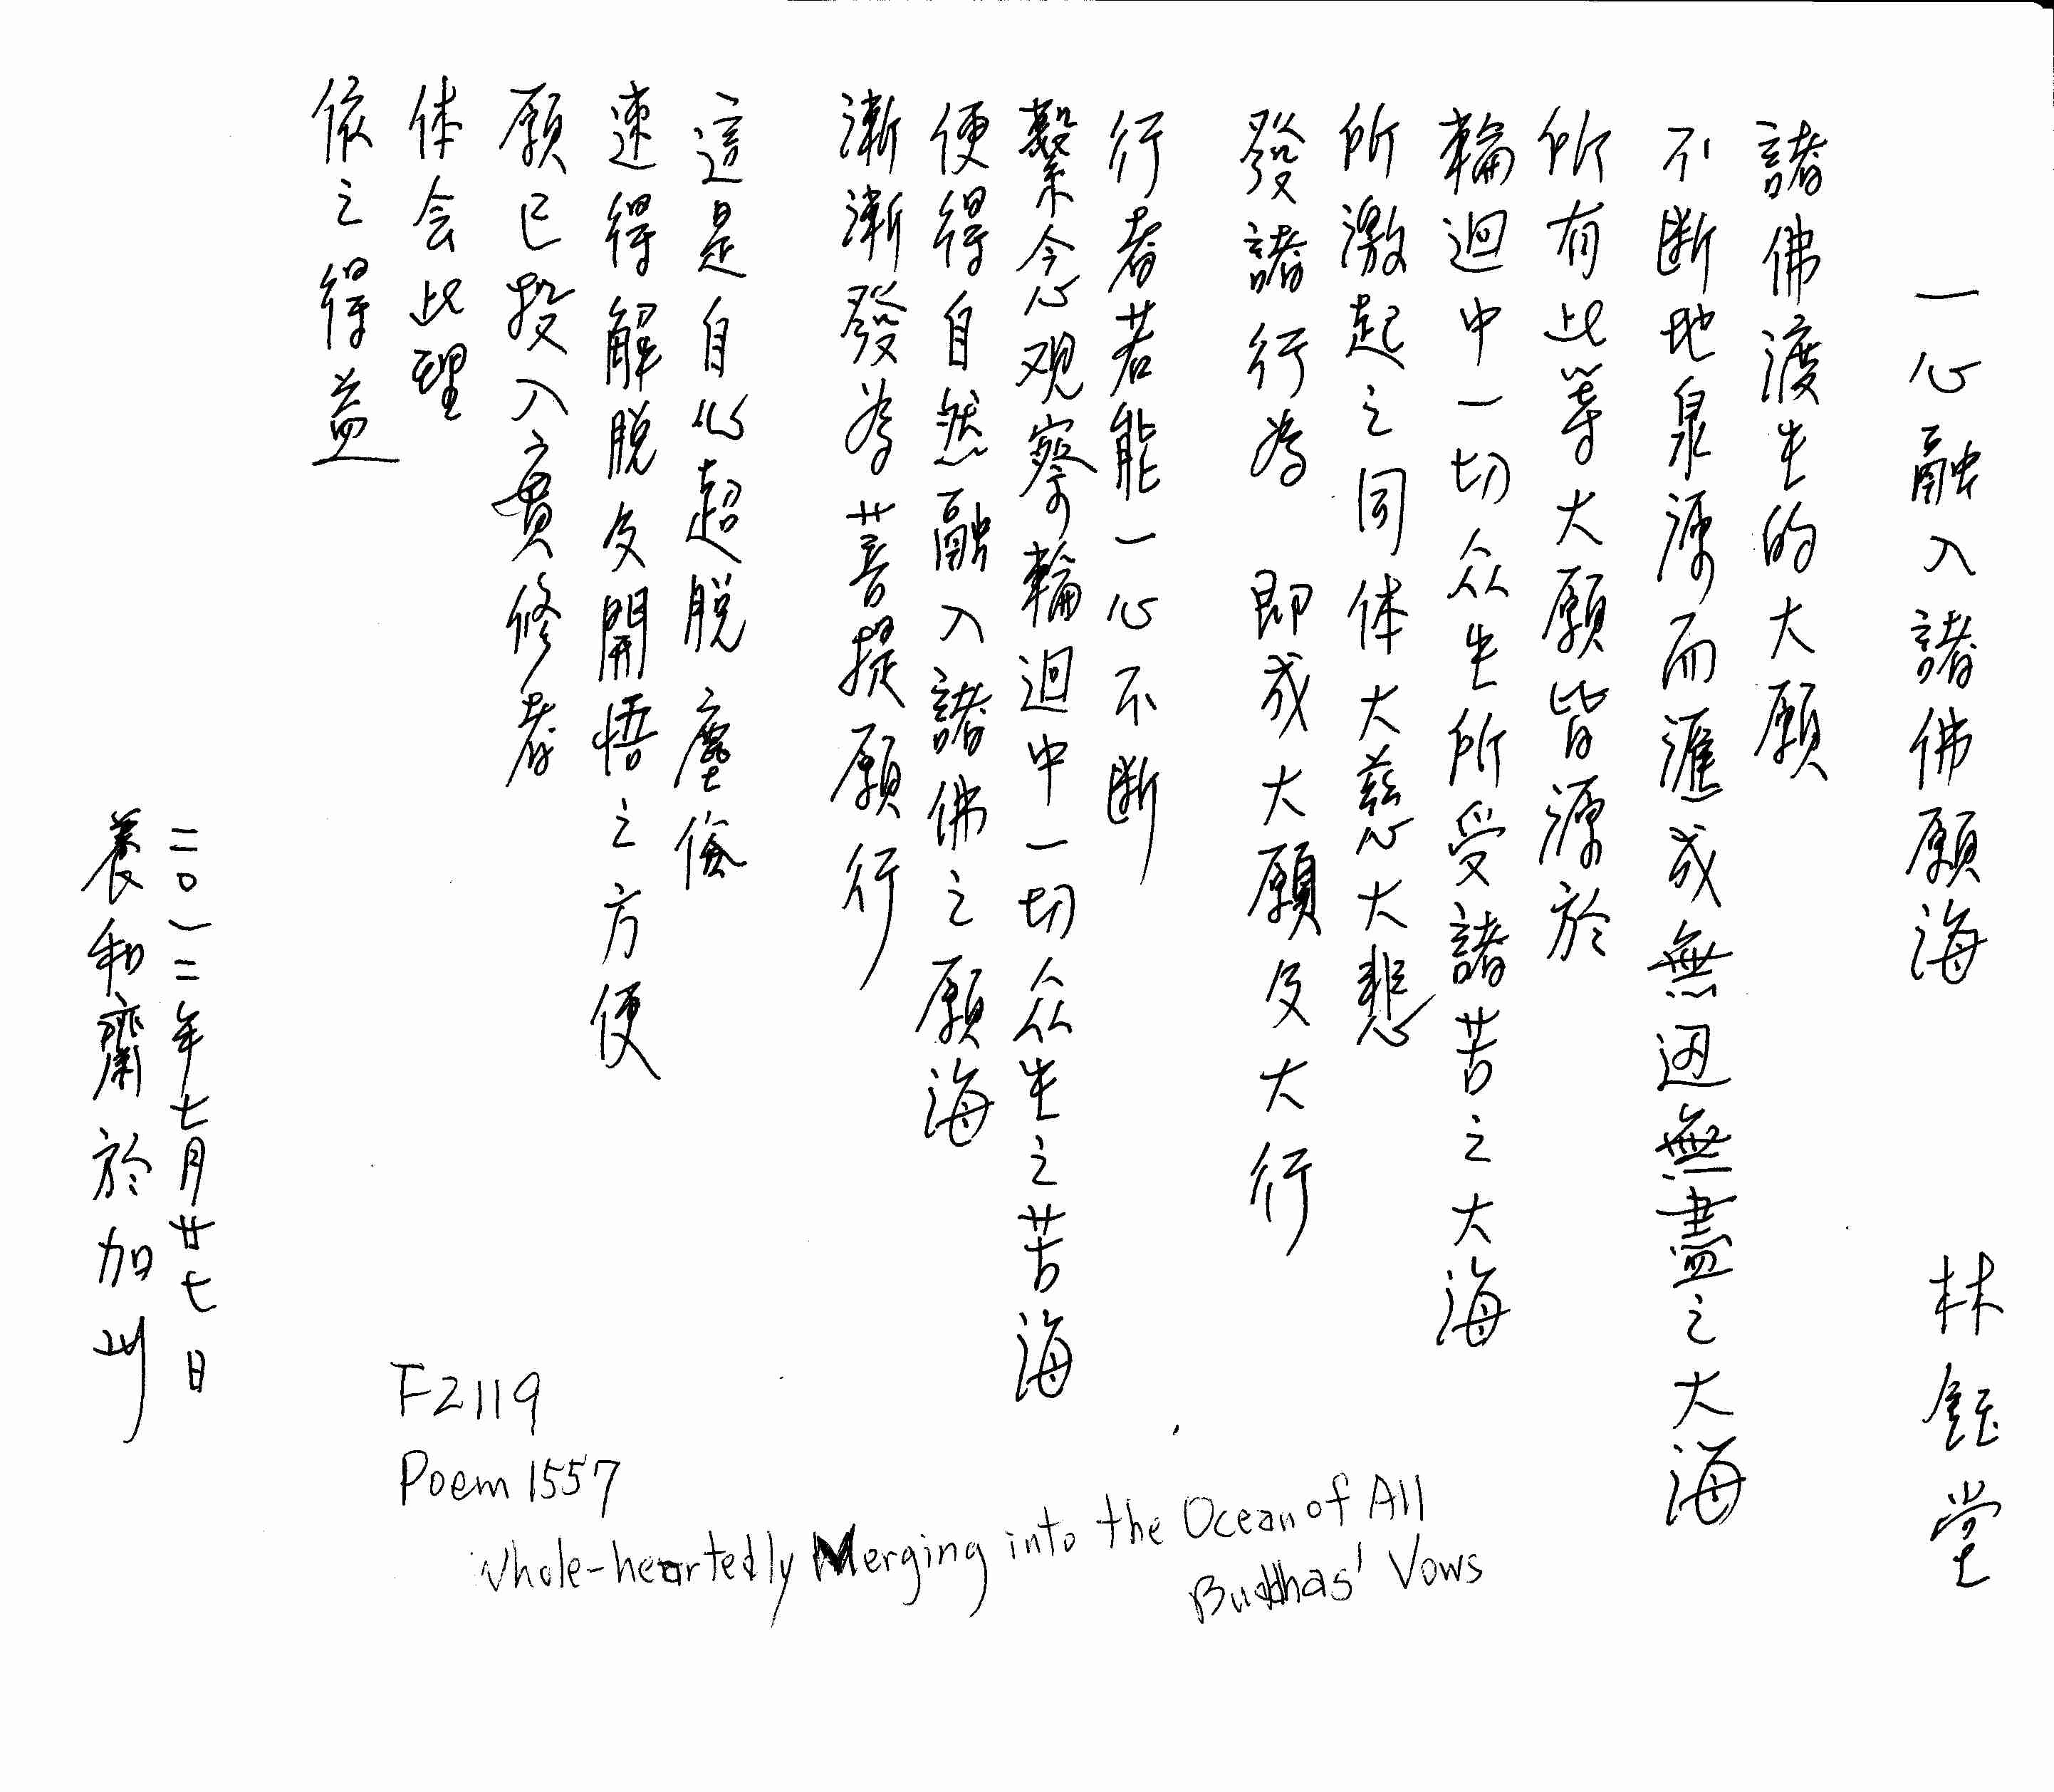 一心融入諸佛願海
林鈺堂
諸佛渡生的大願
不断地泉源而滙成無边無盡之大海
所有此等大願皆源於
輪迴中一切众生所受諸苦之大海
所激起之同体大慈大悲
發諸行為 即成大願及大行
行者若能一心不断
繫念观察輪迴中一切众生之苦海
便得自然融入諸佛之願海
漸漸發為菩提願行
這是自心超脱塵俗
速得解脱及開悟之方便
願已投入實修者
体会此理
依之得益
二〇一二年七月廿七日
養和齋於加州
F2119
Poem 1557
Whole-heartedly Merging into the Ocean of All
Buddhas' Vows